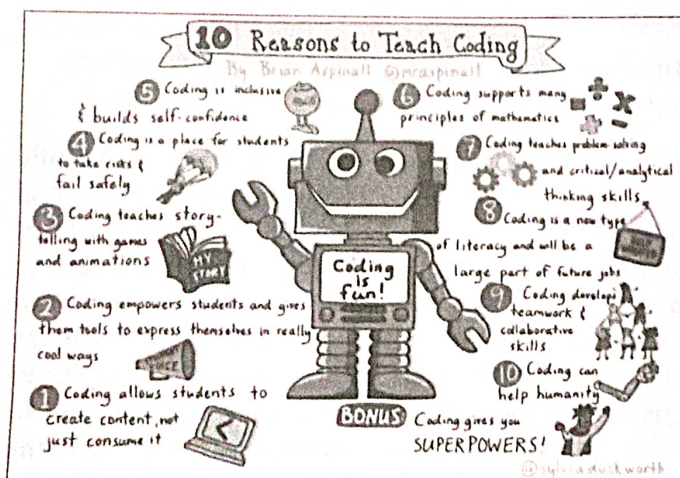 10 Reasons to Teach Coding
By Brian Aspinall @mraspinall
5 Coding is inclusive
& builds self-confidence
4 Coding is a place for students
to take risks &
fail safely
3 Coding teaches story-
telling with games
and animations
MY
STORY
2 Coding empowers students and gives
them tools to express themselves in really
cool ways
1 Coding allows students to
create content, not
just consume it
6 Coding supports many
principles of mathematics
7 Coding teaches problem-solving
and critical/analytical
thinking skills
8 Coding is a new type
of literacy and will be a
large part of future jobs
9 Coding develops
teamwork &
collaborative
skills
10 Coding can
help humanity
Coding
is
fun!
BONUS Coding gives you
SUPERPOWERS!
@sylviaduckworth